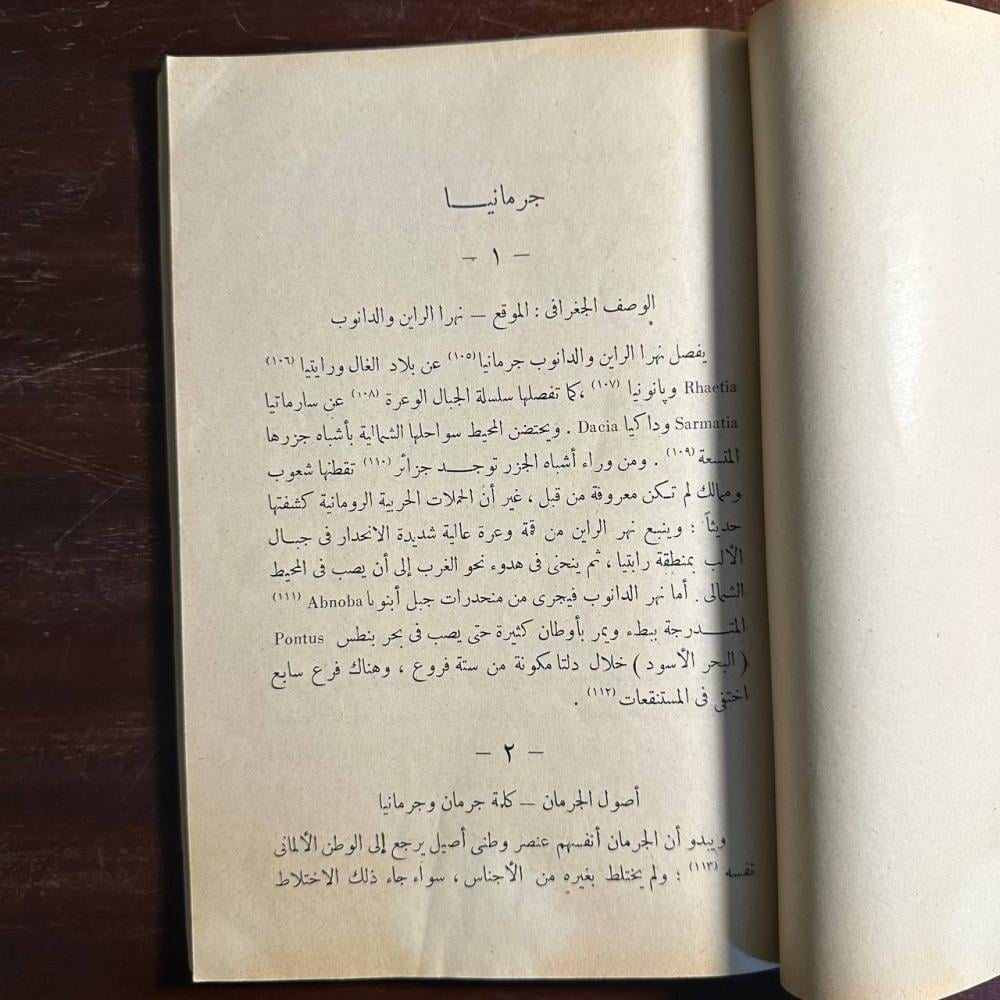 جرمانيــا
— ١ —
الوصف الجغرافى : الموقع — نهرا الراين والدانوب
يفصل نهرا الراين والدانوب جرمانيا (١٠٥) عن بلاد الغال ورايتيا (١٠٦)
Rhaetia وپانونيا (١٠٧) ، كما تفصلها سلسلة الجبال الوعرة (١٠٨) عن سارماتيا
Sarmatia وداكيا Dacia . ويحتضن المحيط سواحلها الشمالية بأشباه جزرها
المتسعة (١٠٩) . ومن وراء أشباه الجزر توجــد جزائر (١١٠) تقطنها شعوب
وممالك لم تـكن معروفة من قبل ، غير أن الحملات الحربية الرومانية كشفتها
حديثاً ؛ وينبع نهر الراين من قمة وعرة عالية شديدة الانحدار فى جبـال
الألب بمنطقة رايتيا ، ثم ينحنى فى هدوء نحو الغرب إلى أن يصب فى المحيط
الشمالى . أما نهر الدانوب فيجرى من منحدرات جبل أبنوبا Abnoba (١١١)
المتــدرجة ببطء ويمر بأوطان كثيرة حتى يصب فى بحر بنطس Pontus
( البحر الأسود ) خلال دلتا مكونة من ستة فروع ، وهناك فرع سابع
اختفى فى المستنقعات (١١٢) .
— ٢ —
أصول الجرمان — كلمة جرمان وجرمانيا
ويبدو أن الجرمان أنفسهم عنصر وطنى أصيل يرجع إلى الوطن الألمانى
نفسه (١١٣) ؛ ولم يختلط بغيره من الأجناس ، سواء جاء ذلك الاختلاط